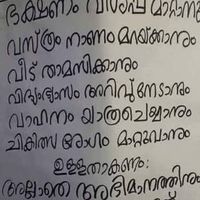 ഭക്ഷണം വിശപ്പ് മാറ്റാനു
വസ്ത്രം നാണം മറയ്ക്കാനും
വീട് താമസിക്കാനും
വിദ്യാഭ്യാസം അറിവ് നേടാനും
വാഹനം യാത്രചെയ്യാനും
ചികിത്സ രോഗം മാറ്റുവാനും
ഉള്ളതാകണം:
അല്ലാതെ അഭിമാനത്തിനും